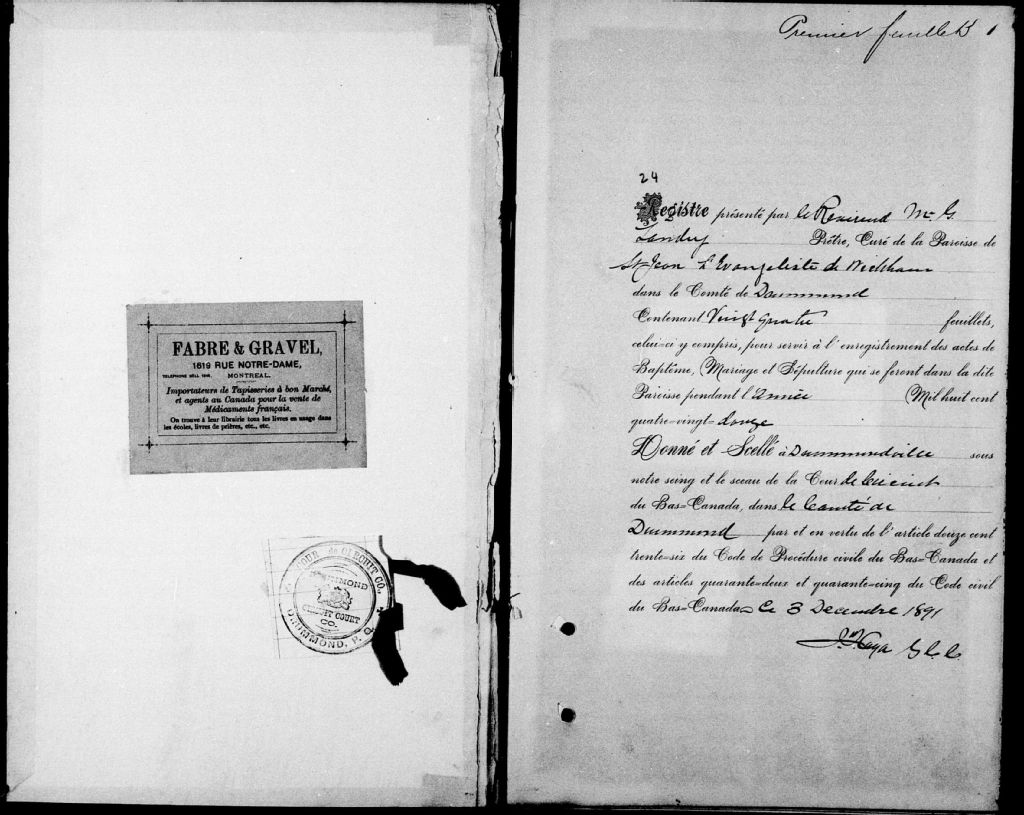 FABRE & GRAVEL,
1619 RUE NOTRE-DAME,
MONTREAL.
Importateurs de Tapisseries à bon Marché,
et agents au Canada pour la vente de
Médicaments français.
On trouve à leur librairie tous les livres en usage dans
les écoles, livres de prières, etc., etc.
COUR de CIRCUIT CO.
DRUMMOND
CIRCUIT COURT
CO.
DRUMMOND, P. Q.
Premier feuillet 1
24
Registre présenté par le Révérend Mr G.
Landry Prêtre, Curé de la Paroisse de
St Jean L'Evangeliste de Wickham
dans le Comté de Drummond
Contenant Vingt quatre feuillets,
celui-ci y compris, pour servir à l'enregistrement des actes de
Baptême, Mariage et Sépulture qui se feront dans la dite
Paroisse pendant l'Année (Mil huit cent
quatre-vingt-douze
Donné et Scellé à Drummondville sous
notre seing et le sceau de la Cour de Circuit
du Bas-Canada, dans le Comté de
Drummond par et en vertu de l'article douze cent
trente-six du Code de Procédure civile du Bas-Canada et
des articles quarante-deux et quarante-cinq du Code civil
du Bas-Canada, Ce 3 Decembre 1891
G. C. C.